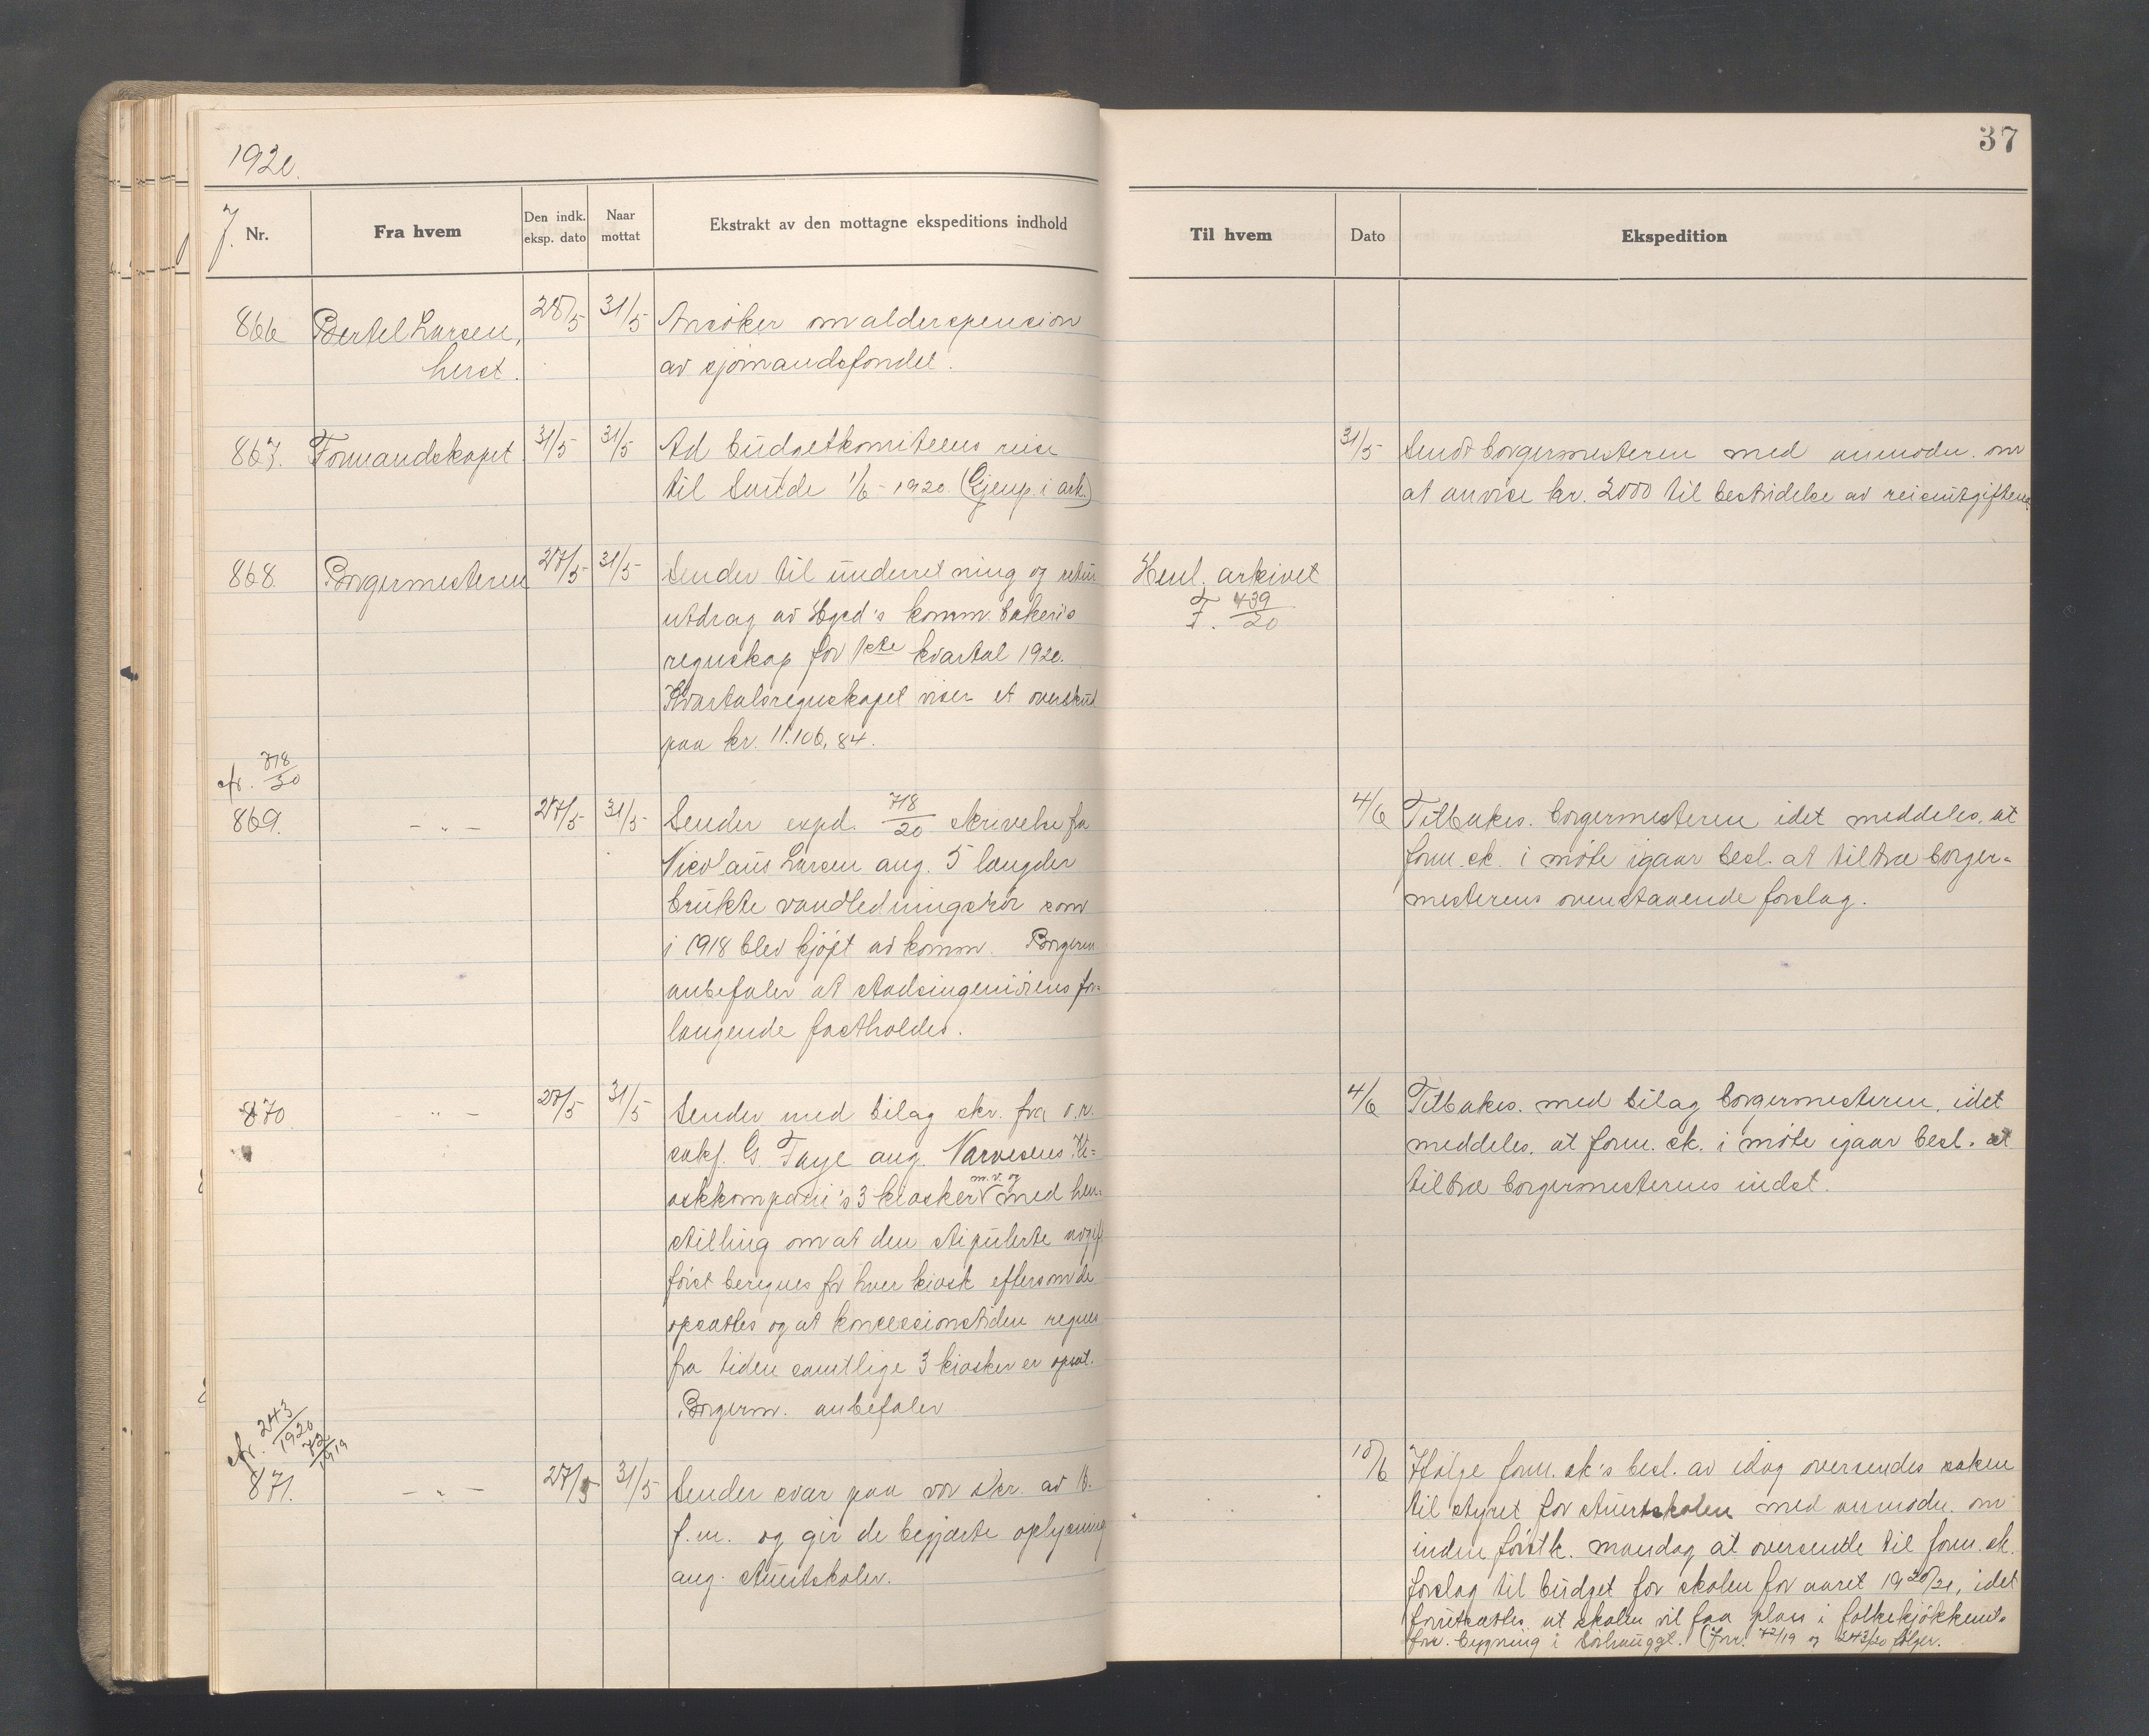 1920.
37
J. Nr.
Fra hvem
Den indk. eksp. dato
Naar mottat
Ekstrakt av den mottagne ekspeditions indhold
Til hvem
Dato
Ekspedition
866 Bertel Larsen, 28/5 31/5 Ansøker om alderspension
herst. av sjømandsfondet.
867. Formandskapet 31/5 31/5 Ad budgetkomiteens reise
til Sande 1/6 - 1920. (Gjenp. i ark.)
31/5 Sendt borgermesteren med anmodn. om
at anvise kr. 2000 til bestridelse av reiseutgiftene.
868. Borgermesteren 27/5 31/5 Sender til underretning og retur
utdrag av Hgsd's komm. bakeris
regnskap for 1ste kvartal 1920.
Kvartalsregnskapet viser et overskud
paa kr. 11.106,84.
Henl. arkivet
F. 439/20
cfr. 718/20
869. - " - 27/5 31/5 Sender exped. 718/20 skrivelse fra
Nicolaus Larsen ang. 5 længder
brukte vandledningsrør som
i 1918 blev kjøpt av komm. Borgerm
anbefaler at stadsingeniørens for-
langende fastholdes.
4/6 Tilbakes. borgermesteren idet meddeles, at
form.sk. i møte igaar besl. at tiltræ borger-
mesterens ovenstaaende forslag.
870. - " - 27/5 31/5 Sender med bilag skr. fra o.r.
sakf. G. Faye ang. Narvesens Ki-
oskkompani's 3 kiosker m.v. og med hen-
stilling om at den stipulerte avgift
først beregnes for hver kiosk eftersom de
opsættes og at koncessionstiden regnes
fra tiden samtlige 3 kiosker er opsat.
Borgerm. anbefaler
4/6 Tilbakes. med bilag borgermesteren, idet
meddeles, at form. sk. i møte igaar besl. at
tiltræ borgermesterens indst.
cfr. 243/1920 72/1919
871. - " - 27/5 31/5 Sender svar paa vor skr. av 16.
f.m. og gir de begjærte oplysning
ang. Auertskolen.
10/6 Ifølge form.sk's besl. av idag oversendes saken
til styret for Auertskolen med anmodn. om
inden førstk. mandag at oversende til form.sk.
forslag til budget for skolen for aaret 1920/21, idet
forutsættes at skolen vil faa plass i folkekjøkkenets
forr. bygning i Sorhauggt. (Jnr. 72/19 og 243/20 følger.